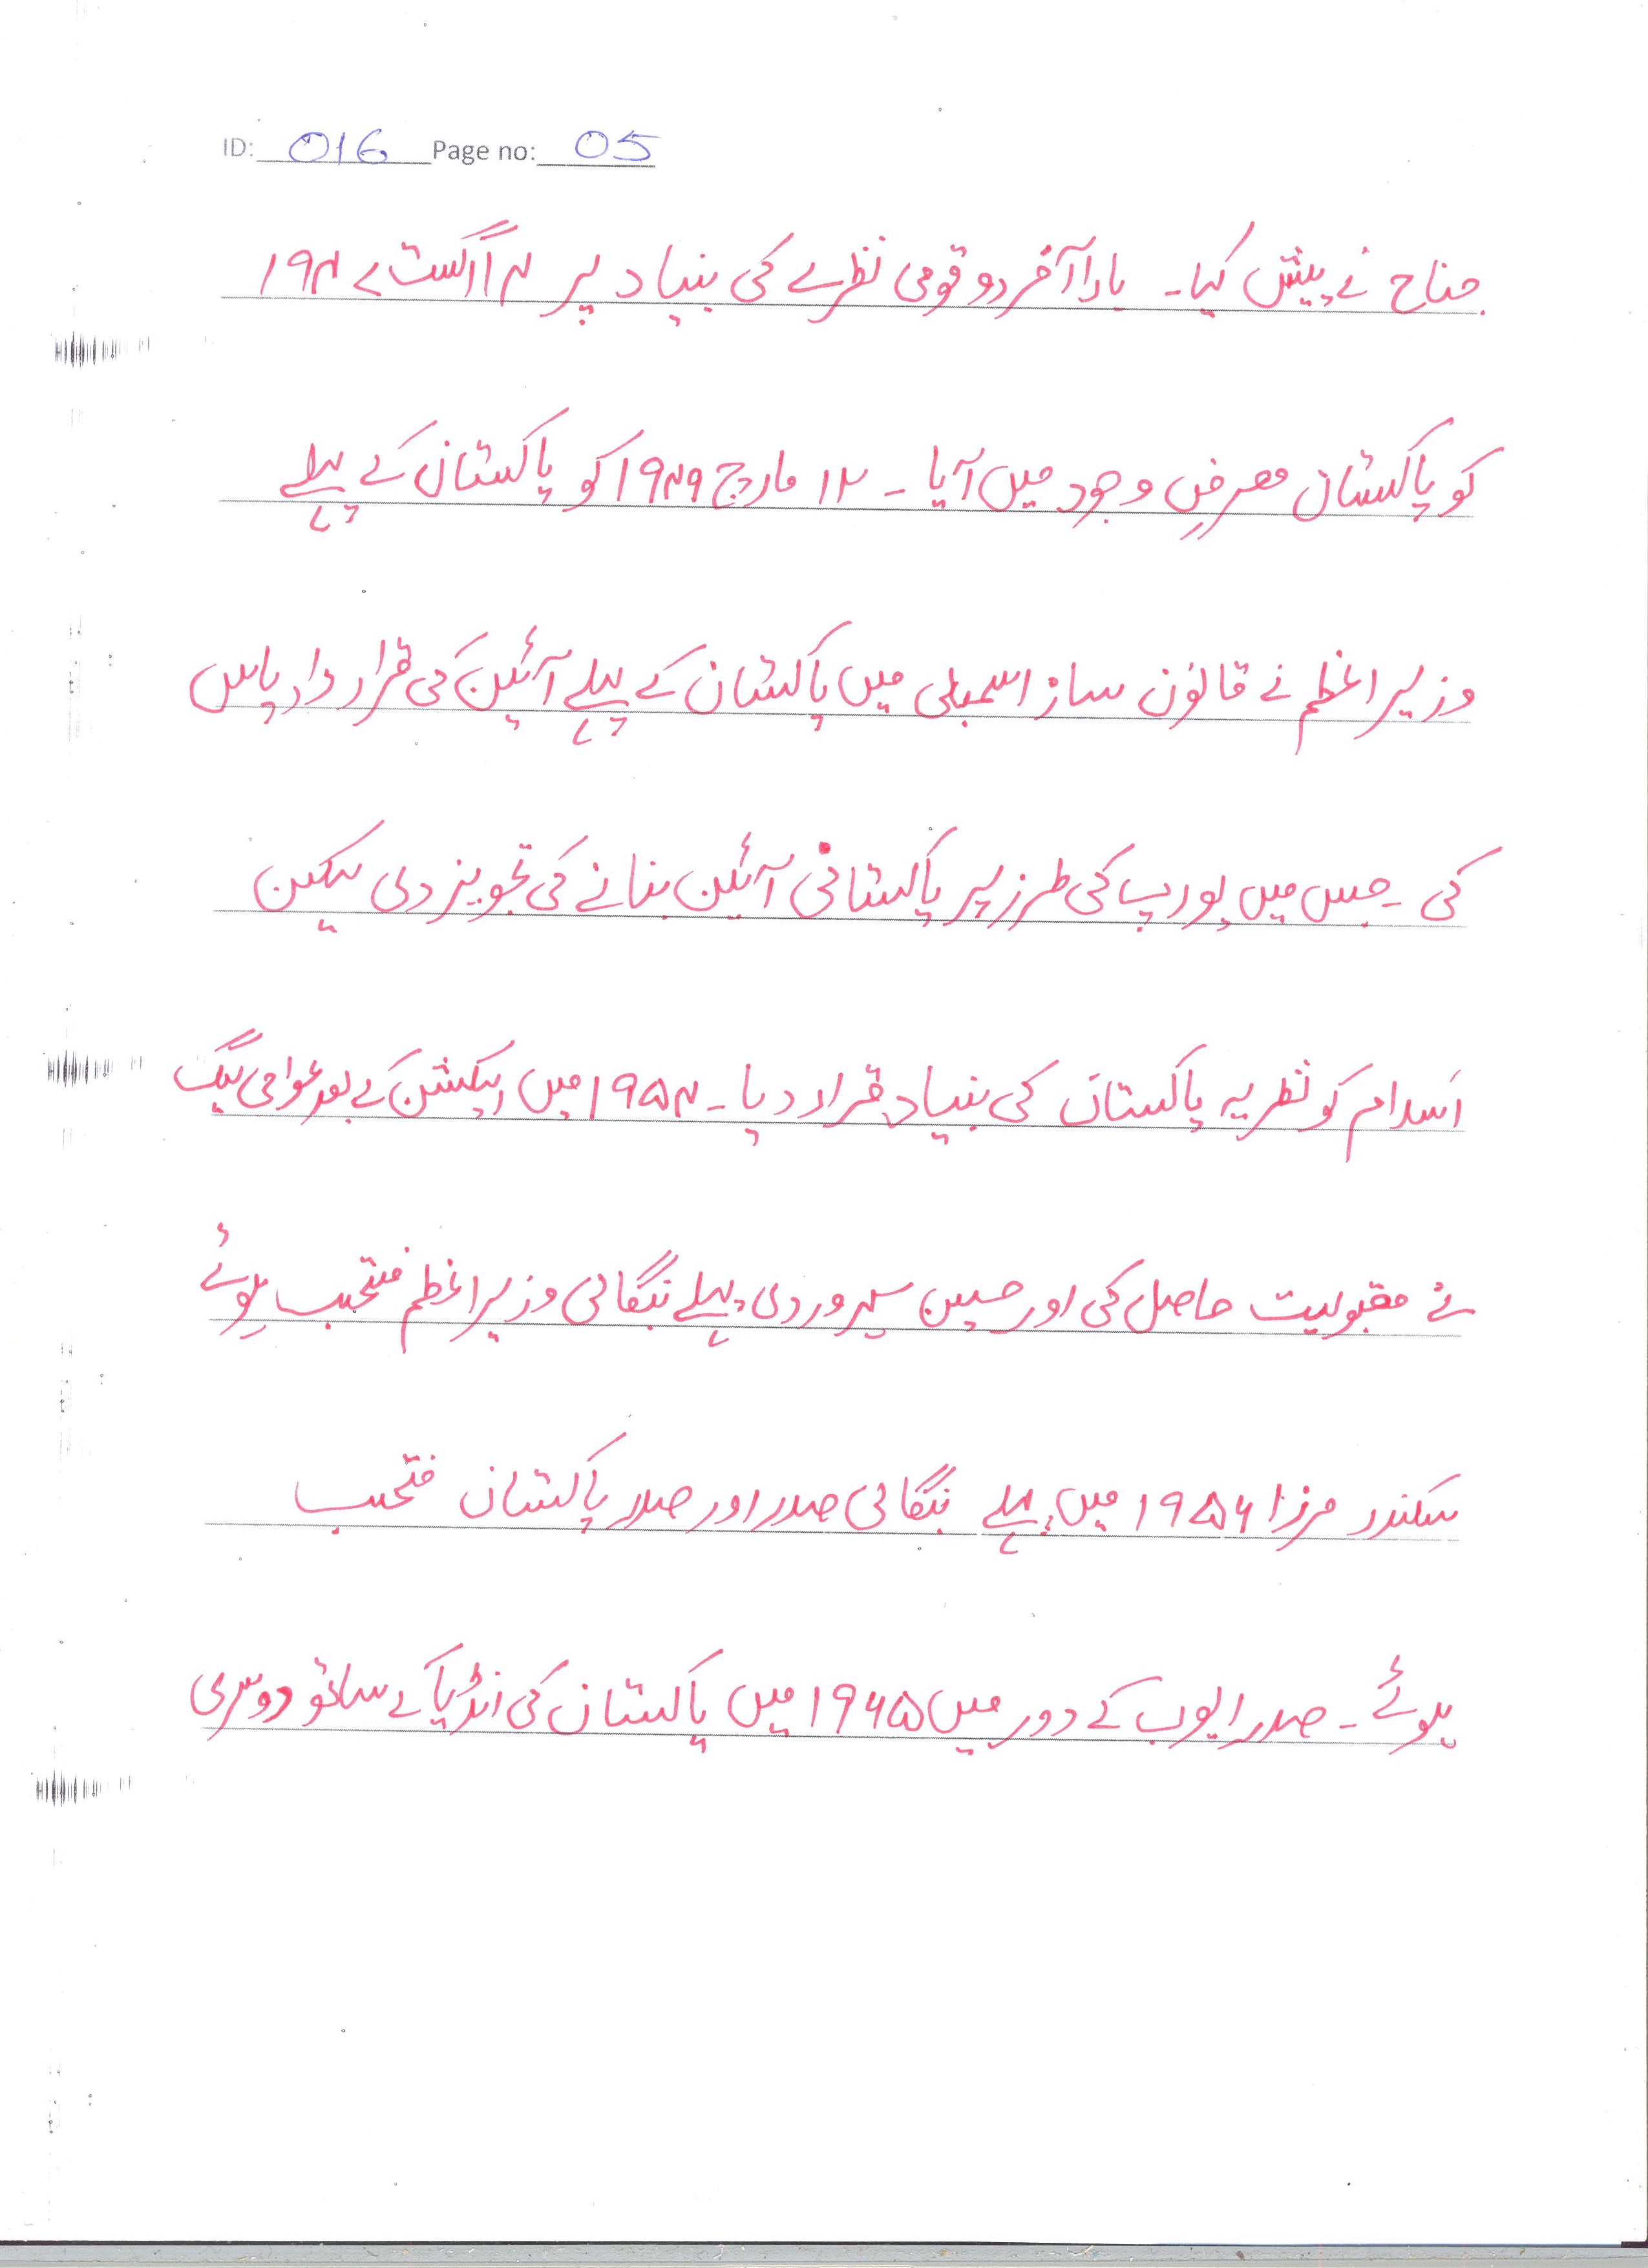 ID: 016 Page no: 05
جناح نے پیش کیا۔ بالاآخر دو قومی نظرے کی بنیاد پر ۱۴ اگست ۱۹۴۷
کو پاکستان معرضِ وجود میں آیا۔ ۱۲ مارچ ۱۹۴۹ کو پاکستان کے پہلے
وزیراعظم نے قانون ساز اسمبلی میں پاکستان کے پہلے آئین کی قرار داد پاس
کی۔ جس میں یورپ کی طرز پر پاکستانی آئین بنانے کی تجویز دی لیکن
اسلام کو نظریہ پاکستان کی بنیاد قرار دیا۔ ۱۹۵۴ میں الیکشن کے بعد عوامی لیگ
نے مقبولیت حاصل کی اور حسین سہروردی پہلے بنگالی وزیراعظم منتخب ہوئے
سکندر مرزا ۱۹۵۶ میں پہلے بنگالی صدر اور صدر پاکستان منتخب
ہوئے۔ صدر ایوب کے دور میں ۱۹۶۵ میں پاکستان کی انڈیا کے ساتھ دوسری